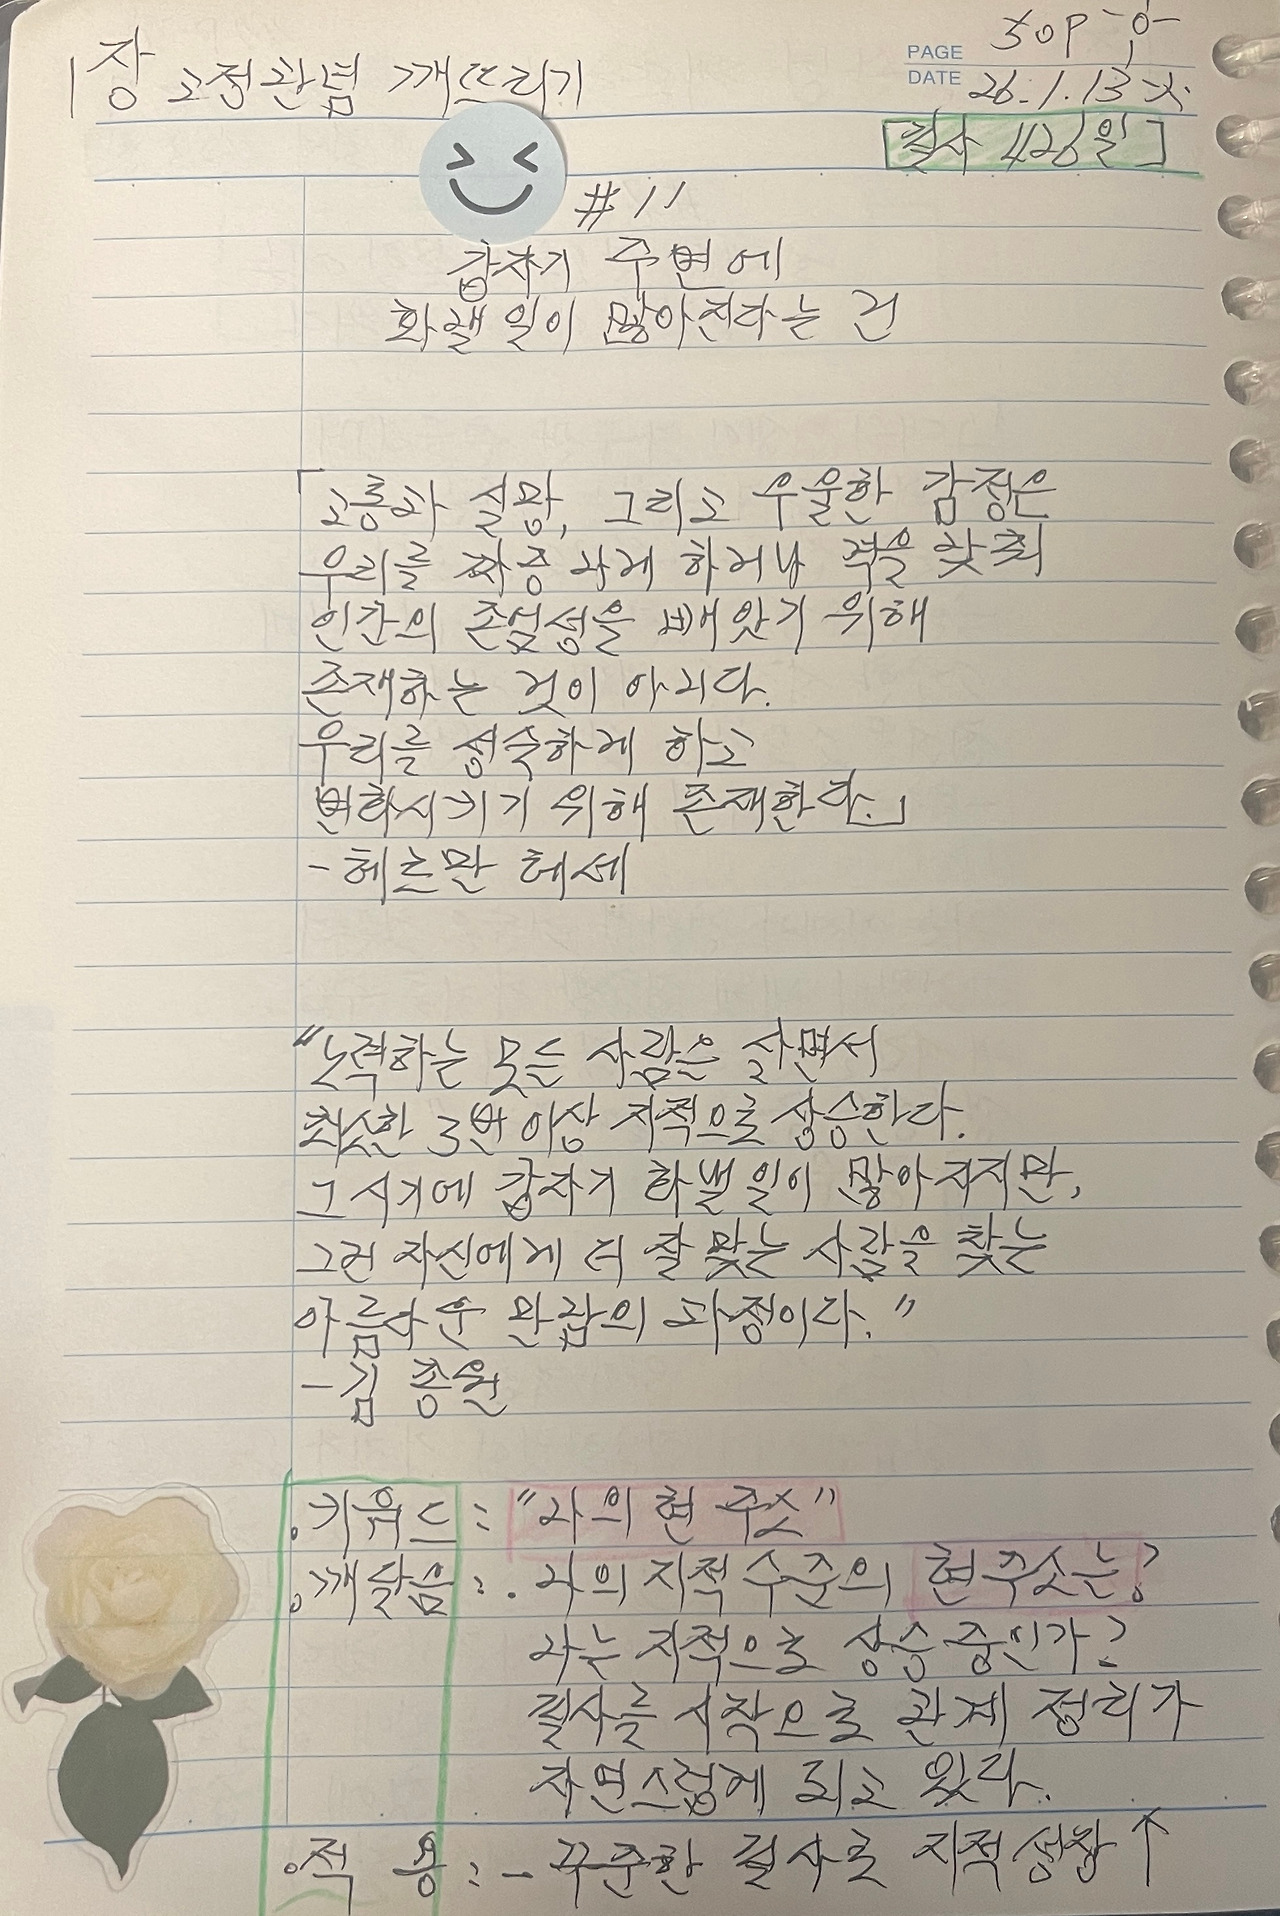 1장 고정관념 깨뜨리기
PAGE 50P 中
DATE 26.1.13 火.
[필사 426일]
#11
갑자기 주변에
화낼 일이 많아진다는 건
「고통과 실망, 그리고 우울한 감정은
우리를 짜증 나게 하거나 격을 낮춰
인간의 존엄성을 빼앗기 위해
존재하는 것이 아니다.
우리를 성숙하게 하고
변화시키기 위해 존재한다.」
-헤르만 헤세
"노력하는 모든 사람은 살면서
최소한 3번 이상 지적으로 상승한다.
그 시기에 갑자기 화낼 일이 많아지지만,
그건 자신에게 더 잘 맞는 사람을 찾는
아름다운 만남의 과정이다."
-김종원
.키워드 : "나의 현 주소"
.깨달음 : . 나의 지적 수준의 현주소는?
나는 지적으로 상승 중인가?
필사를 시작으로 관계 정리가
자연스럽게 되고 있다.
.적용 : - 꾸준한 필사로 지적 성장↑